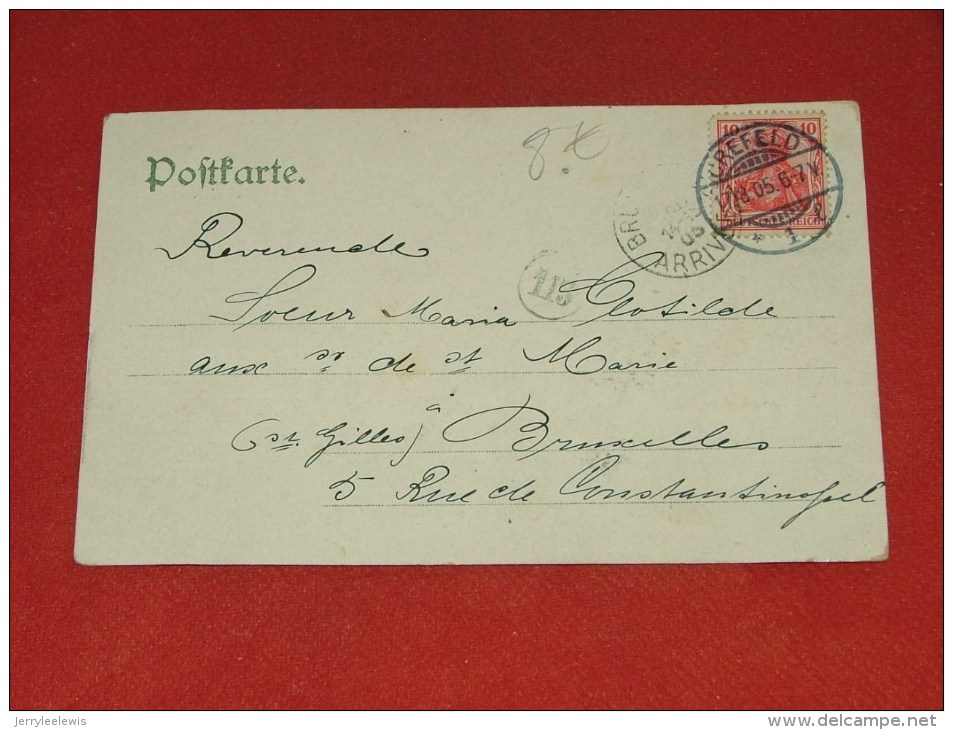 Postkarte.
8 €
10 10
DEUTSCHES REICH
CREFELD
8.05.6-7V.
* 1
BRU
05
ARRIV
115
Reverende
Soeur Maria Clotilde
aux sr de st Marie
(st. Gilles) à Bruxelles
5 Rue de Constantinopel
jerryleelewis
http://www.delcampe.net